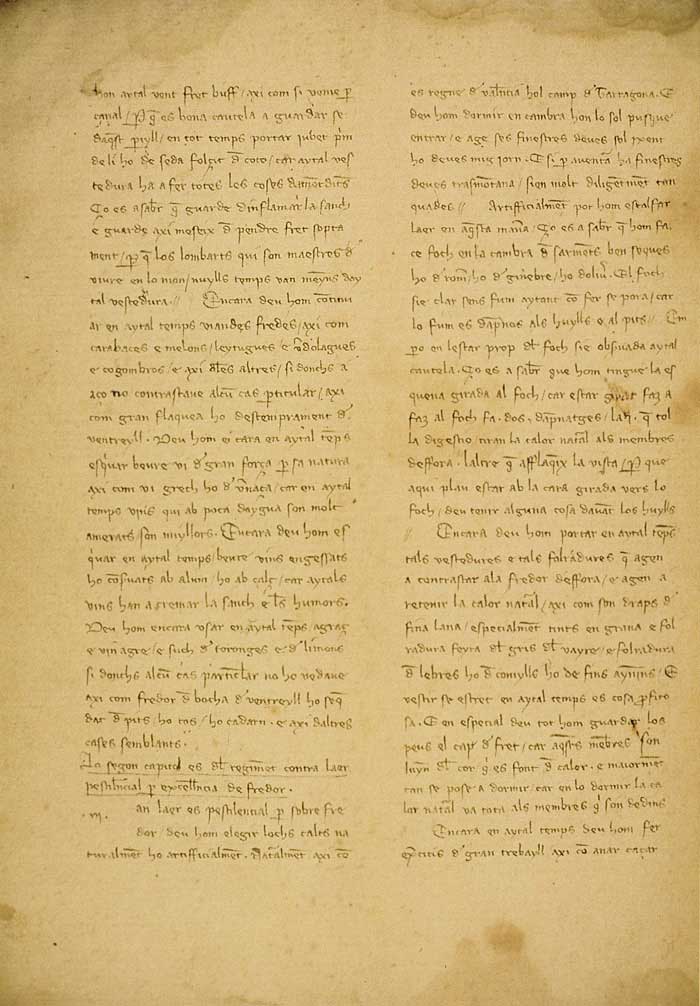 hon aytal vent fret buff / axi com si venie p̲
canal / P̲ q̄ es bona cautela a guardar se
daq̄st p̲iyll / en tot temps portar jubet p̲im
de li ho de seda folgit d̄ coto / car aytal ves
tedura ha a fer totes les coses damōt dites
Ço es a sabr̄ q̄ guarde dinflamar la sanch
e guarde axi meteix d̄ pendre fret sopta
ment / P̲ q̄ los lombarts qui son maestres d̄
viure en lo mon / nuylls temps van meyns day
tal vestedura // Encara deu hom cōtinu
ar en aytal temps viandes fredes / axi com
carabaces e melons / leytugues e v̄dolagues
e cogombros / e axi dl̄es altres / si donchs a
aço no contrastave alcū cas p̲ticular / axi
com gran flaquea ho destemprament d̄
ventreyll . Deu hom ēcara en aytal tēps
esq̄uar beure vi d̄ gran força p̲ sa natura
axi com vi grech ho d̄ v̄naça / car en aytal
temps vins qui ab poca daygua son molt
amerats son myllors . Encara deu hom es
q̄uar en aytal temps / beure vins engessats
ho cōfuats ab alum / ho ab calç / car aytals
vins han a cremar la sanch e ls humors .
Deu hom encara vsar en aytal tēps / agraç
e vin agre / e such d̄ toronges e d̄ limons
si donchs alcū cas particlar no ho vedave
axi com fredor d̄ bocha d̄ ventreyll ho seq̄
dat d̄ pits / ho tos / ho cadarn . e axi daltres
cases semblants .
Lo segon capitol es dl̄ regimēt contra laer
pestilēcial p̲ excellēcia de fredor .
an laer es pestilencial p̲ sobre fre
dor / deu hom elegir lochs calts na
turalmēt ho artifficialmēt . Natalmēt . axi cō
es regne d̄ valēncia hol camp d̄ Tarragona . E
deu hom dormir en cambra hon lo sol pusque
entrar / e age ses finestres deves sol ixent
ho deves mig jorn . E si p̲ aventā ha finestres
deves trasmōtana / sien molt diligētmēt tan
quades // Artifficialmēt pot hom escalfar
laer en aq̄sta manā / Ço es a sabr̄ q̄ hom fa
ce foch en la cambra d̄ sarmēts ben seques
ho d̄ romī / ho d̄ ginebre / ho doliū . El foch
sie clar sens fum aytant cō fer se pora / car
lo fum es dāpnos als huylls e al pits // Em
p̲o en lestar prop dl̄ foch sie obsuada aytal
cautela . Ço es a sabr̄ que hom tingue la es
quena girada al foch / car estar girat faz a
faz al foch fa . dos . dāpnatges / la .j. q̄ tol
la digestio tiran la calor natāl als membres
deffora . laltre q̄ afflaq̄ix la vista / P̲ que
aqui plau estar ab la cara girada vers lo
foch / deu tenir alguna cosa davāt los huylls
// Encara deu hom portar en aytal tēps
tals vestedures e tals folradures q̄ agen
a contrastar a la fredor deffora / e agen a
retenir la calor natāl / axi com son draps d̄
fina lana / especialmēt tints en grana e fol
radura feyta dl̄ gris dl̄ vayre / e folradura
d̄ lebres ho d̄ conylls ho de fins anynns / E
vestir se estret en aytal temps es cosa p̲fito
sa . E en especial deu tot hom guardar los
peus el cap d̄ fret / car aq̄sts mēbres son
luyn dl̄ cor q̄ es font d̄ calor . e maiormēt
can se pose a dormir / car en lo dormir la ca
lor natāl va tota als membres q̄ son dedins
Encara en aytal temps deu hom fer
ex̄cicis d̄ gran trebayll axi cō anar caçar